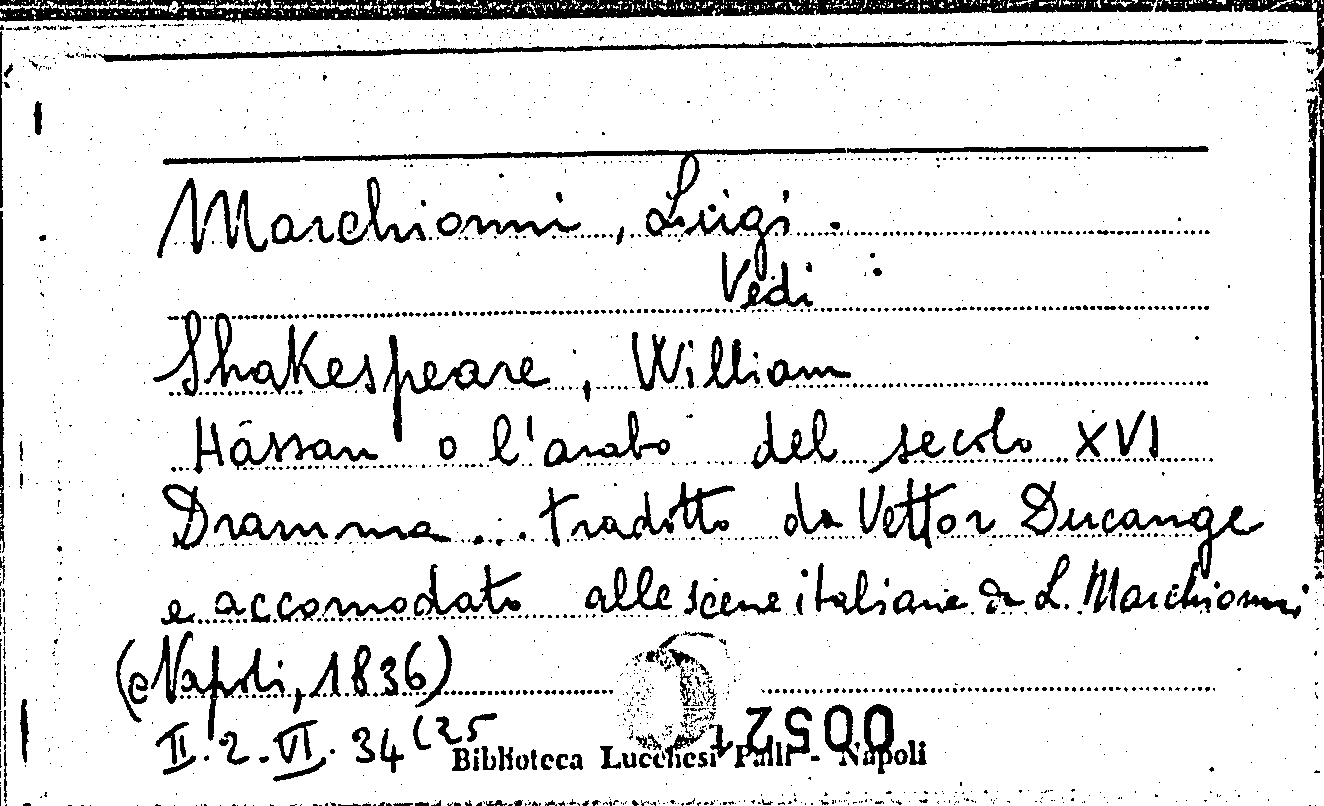 Marchionni, Luigi.
Vedi :
Shakespeare, William
Hássan o l'arabo del secolo XVI
Dramma... tradotto da Vettor Ducange
e accomodato alle scene italiane da L. Marchionni
(Napoli, 1836)
II. 2. VI. 34 (25
Biblioteca Lucchesi Palli - Napoli